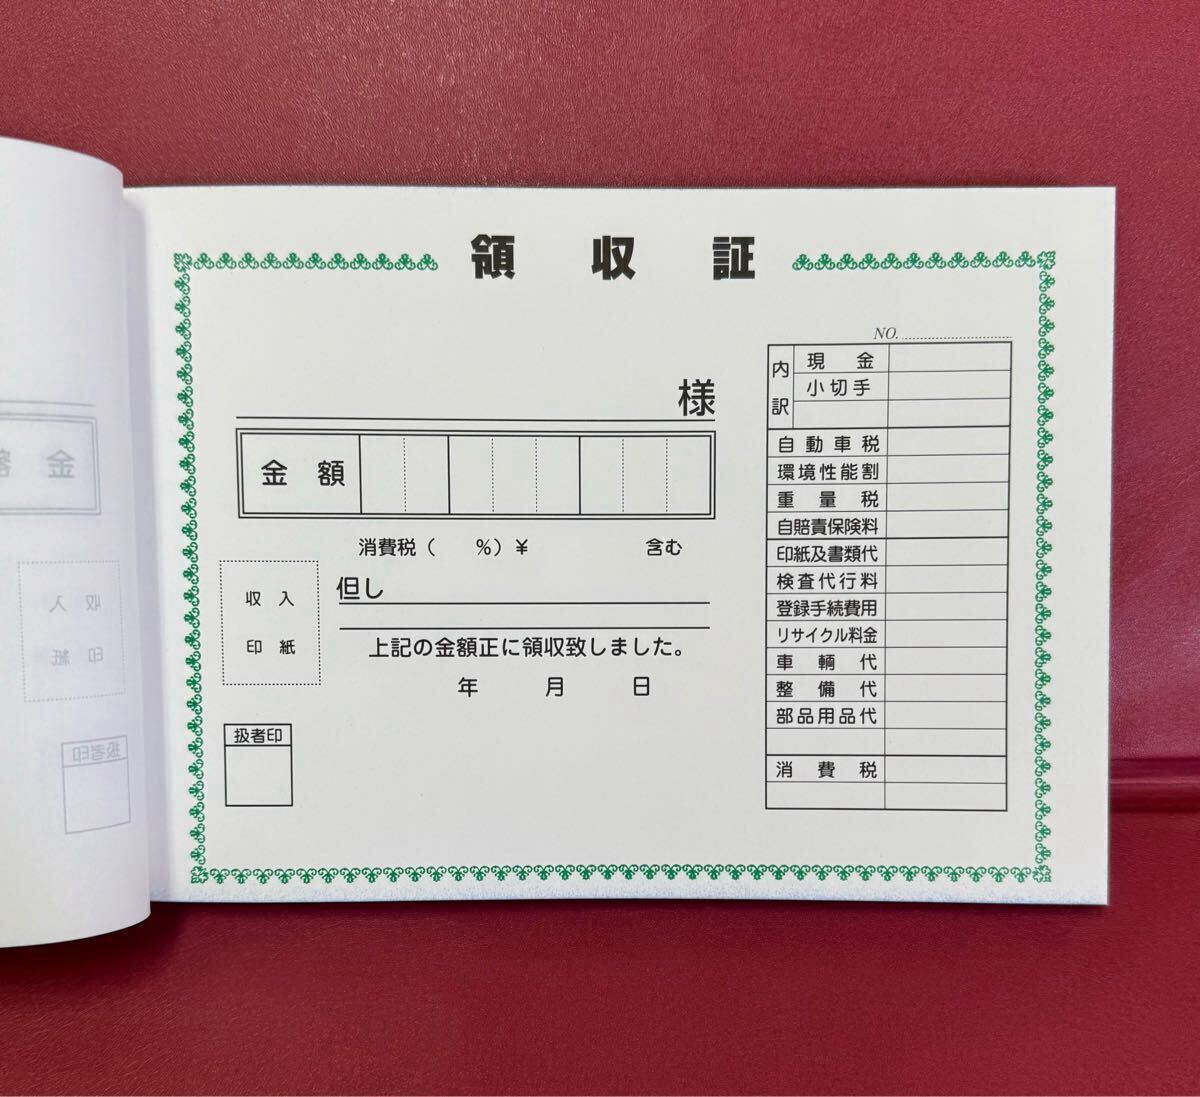 領 収 証
NO.
様
金 額
消費税( %)¥ 含む
但し
収 入
印 紙
上記の金額正に領収致しました。
年 月 日
扱者印
内訳
現 金
小切手
自動車税
環境性能割
重量税
自賠責保険料
印紙及書類代
検査代行料
登録手続費用
リサイクル料金
車輌代
整備代
部品用品代
消費税
金
収 入
印 紙
扱者印